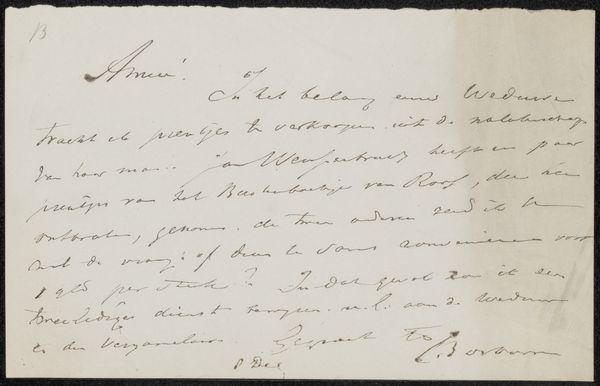 13
Amice!
In het belang eener Weduwe
tracht ik prentjes te verkoopen uit de nalatenschap
van haar man. heeft een paar
prentjes van het van Roos, die hem
ontbraken, genomen. de twee andere zend ik U
met de vraag: of deze U soms convenieren voor
1 gld per stuk? In dat geval zou ik een
tweeledigen dienst n.l. aan de Weduwe
en den Verzamelaar. Gegroet
8 Dec